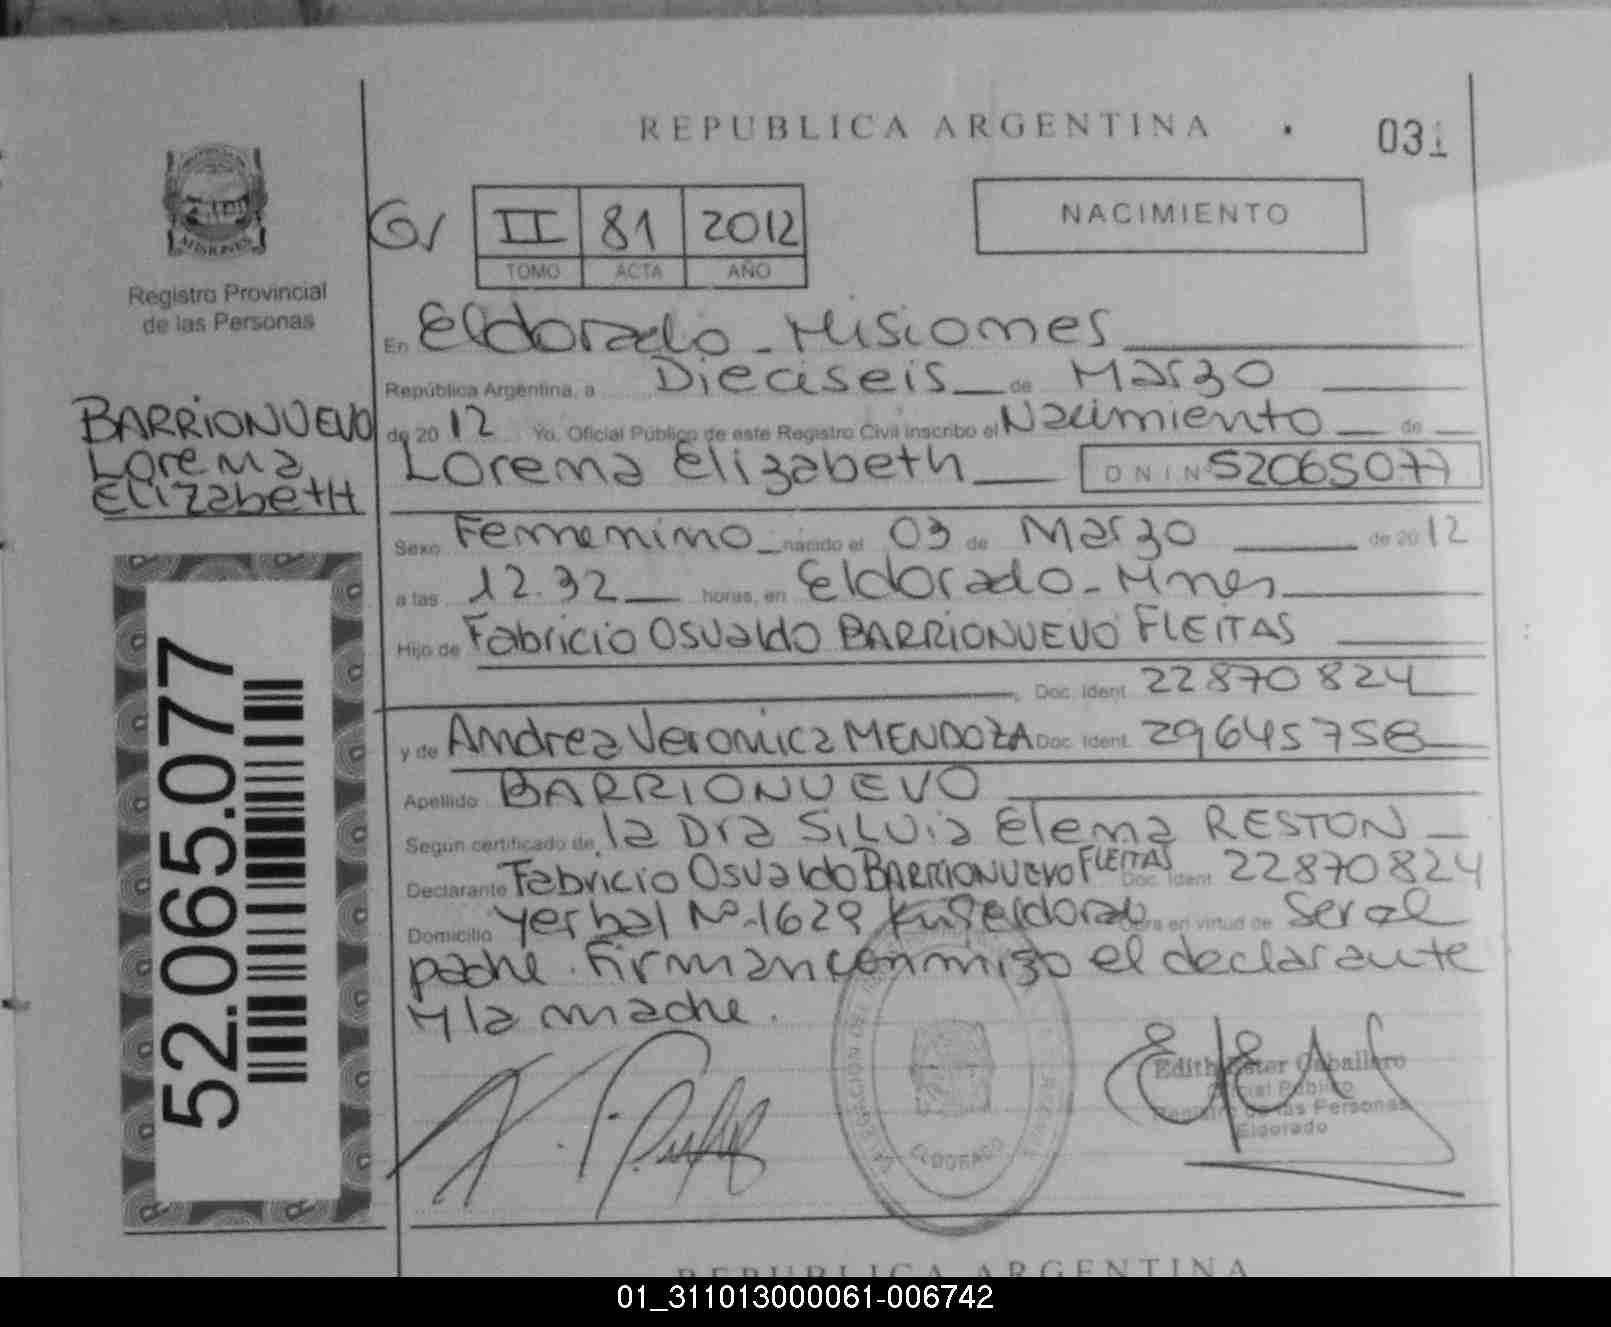 REPUBLICA ARGENTINA
031
MISIONES
Registro Provincial
de las Personas
II 81 2012
TOMO ACTA AÑO
NACIMIENTO
En Eldorado - Misiones
República Argentina, a Dieciseis de Marzo
de 2012 Yo, Oficial Público de este Registro Civil inscribo el Nacimiento de
Lorena Elizabeth DNI N 52065077
BARRIONUEVO
Lorena
Elizabeth
Sexo Femenino nacido el 03 de Marzo de 2012
a las 12.32 horas, en Eldorado - Mnes
Hijo de Fabricio Osvaldo BARRIONUEVO FLEITAS
Doc. Ident. 22870824
y de Andrea Veronica MENDOZA Doc. Ident. 29645758
Apellido BARRIONUEVO
Según certificado de la Dra Silvia Elena RESTON
Declarante Fabricio Osvaldo BARRIONUEVO FLEITAS Doc. Ident. 22870824
Domicilio Yerbal Nº 1629 Km9 eldorado en virtud de Ser el
padre. Firman conmigo el declarante
y la madre.
52.065.077
ELDORADO
Edith Ester Caballero
Oficial Público
Registro de las Personas
Eldorado
REPUBLICA ARGENTINA
01_311013000061-006742